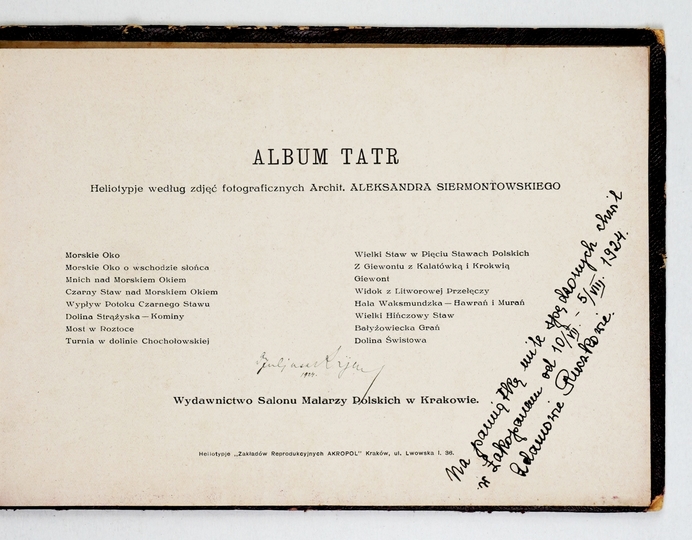 ALBUM TATR
Heliotypje według zdjęć fotograficznych Archit. ALEKSANDRA SIERMONTOWSKIEGO
Morskie Oko
Morskie Oko o wschodzie słońca
Mnich nad Morskiem Okiem
Czarny Staw nad Morskiem Okiem
Wypływ Potoku Czarnego Stawu
Dolina Strążyska — Kominy
Most w Roztoce
Turnia w dolinie Chochołowskiej
Wielki Staw w Pięciu Stawach Polskich
Z Giewontu z Kalatówką i Krokwią
Giewont
Widok z Litworowej Przełęczy
Hala Waksmundzka — Hawrań i Murań
Wielki Hińczowy Staw
Bałyżowiecka Grań
Dolina Świstowa
Wydawnictwo Salonu Malarzy Polskich w Krakowie.
Heliotypje „Zakładów Reprodukcyjnych AKROPOL" Kraków, ul. Lwowska l. 36.
Na pamiątkę mile spędzonych chwil
w Zakopanem od 10/VII. - 5/VIII. 1924.
Adamowie Ruczkowie.